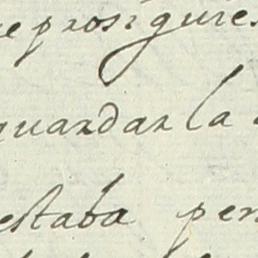 e prosiguies
guardar la
estaba per